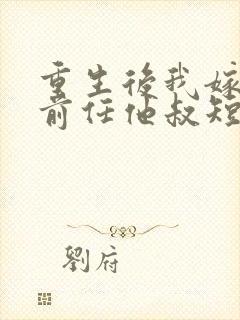 重生後我嫁
前任他叔短
劉府